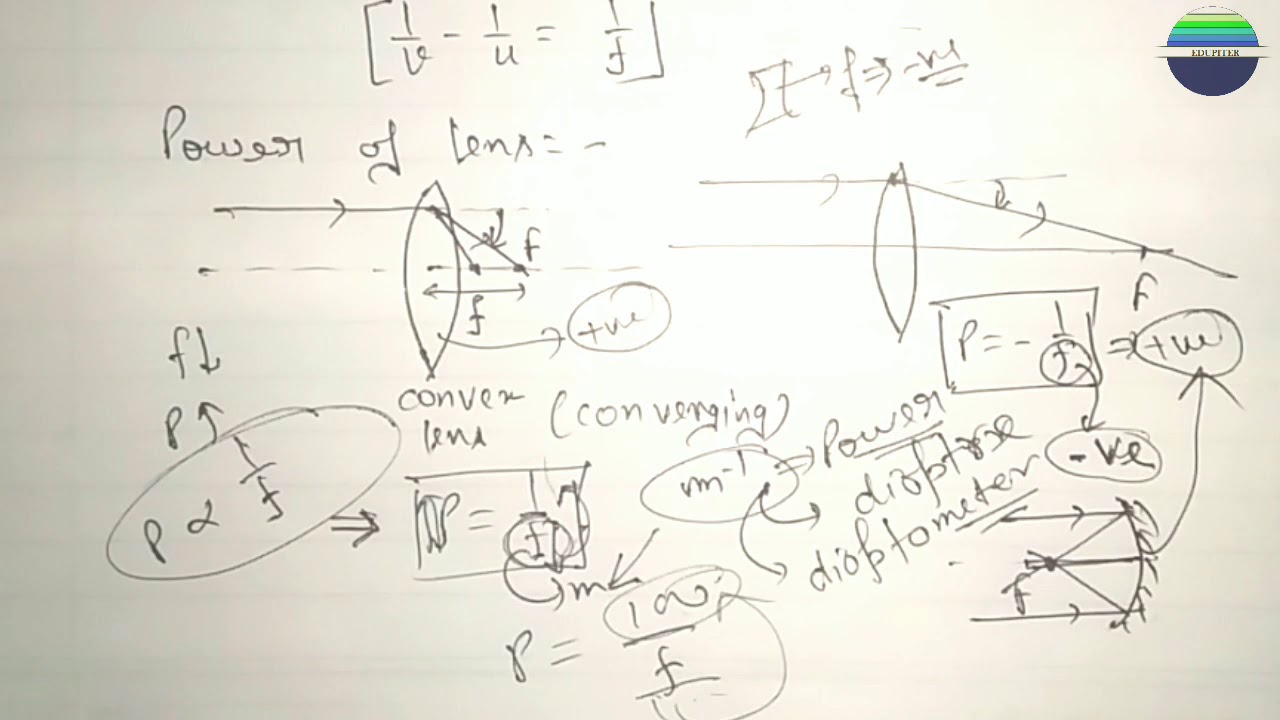 [1/v - 1/u = 1/f]
EDUPITER
f ⇒ -ve
Power of lens = -
F
f
+ve
F
f↓
P↑
P = - 1/f ⇒ +ve
convex
lens
(converging)
P ∝ 1/f ⇒ P = 1/f
m
m⁻¹ ⇒ Power
dioptre
dioptometer
-ve
F
P = 100/f